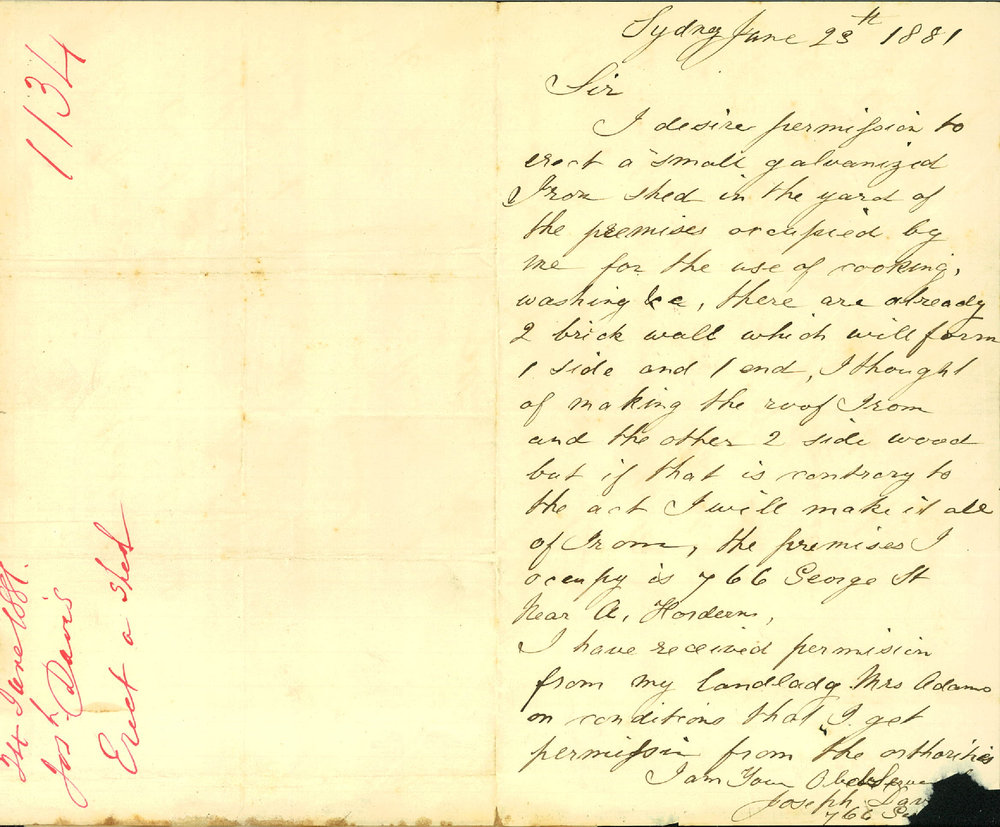 1134
24 June 1881.
Josh. Davis
Erect a shed
Sydney June 23th 1881
Sir
I desire permission to
erect a small galvanized
Iron shed in the yard of
the premises occupied by
me for the use of cooking,
washing &c, there are already
2 brick wall which will form
1 side and 1 end, I thought
of making the roof Iron
and the other 2 side wood
but if that is contrary to
the act I will make it all
of Iron, the premises I
occupy is 766 George St
Near A, Horderns,
I have received permision
from my landlady Mrs Adams
on conditions that I get
permission from the orthorities
I am Your Obed
Joseph
766